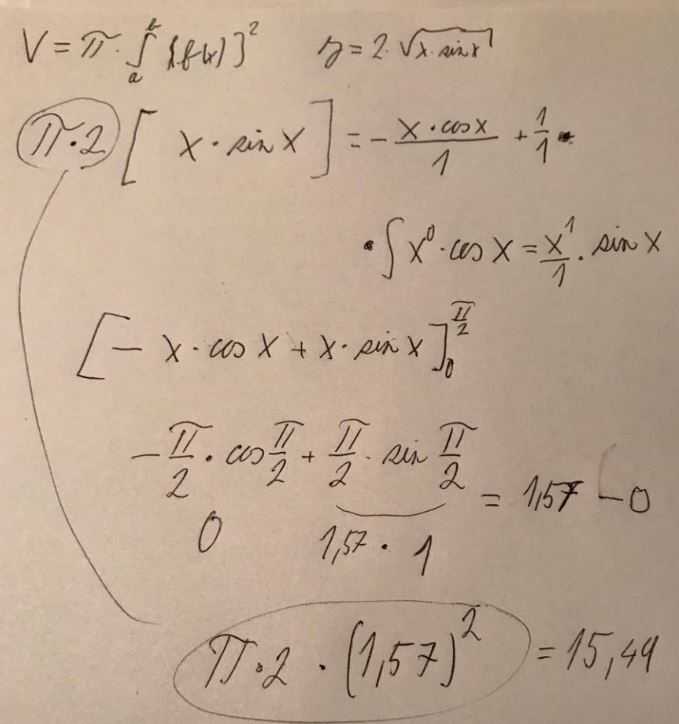 V = π · ∫_a^b [f(x)]² y = 2 · √(x · sin x)
π · 2 [ x · sin x ] = - (x · cos x)/1 + 1/1 ·
· ∫ x⁰ · cos x = x¹/1 · sin x
[ - x · cos x + x · sin x ]_0^(π/2)
- π/2 · cos π/2 + π/2 · sin π/2 = 1,57 - 0
0 1,57 · 1
π · 2 · (1,57)² = 15,49